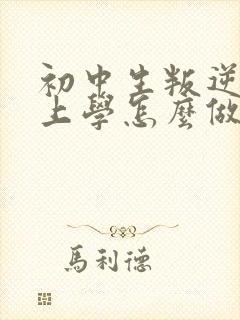 初中生叛逆
上學怎麼做
馬利德